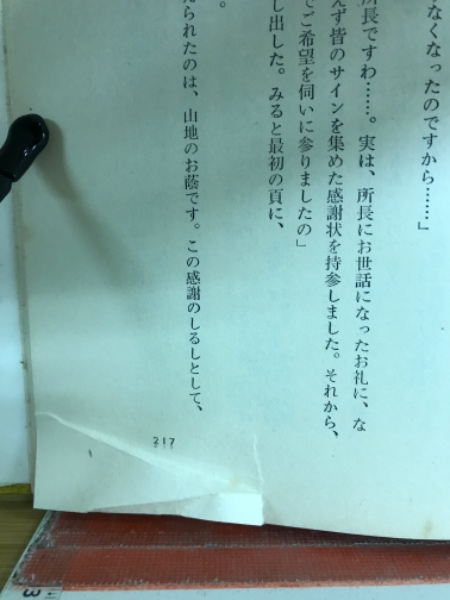 なくなったのですから……」
所長ですわ……。実は、所長にお世話になったお礼に、な
えず皆のサインを集めた感謝状を持参しました。それから、
でご希望を伺いに参りましたの」
し出した。みると最初の頁に、
。
えられたのは、山地のお蔭です。この感謝のしるしとして、
217
3